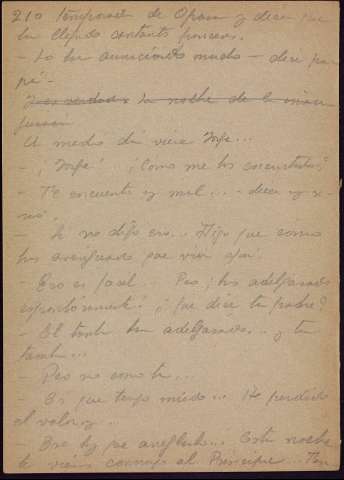 210 temporada de Opera y dicen que
ha llegado cantante
— Lo han anunciado mucho — dice pa-
pá —
Y es verdad a la noche de la inau-
A medio día viene Pepe...
— ¡Pepe! ¿Cómo me has encontrado?
— Te encuentro mil... — dice
— Te no digo eso... Digo que como
has averiguado que vivo aquí.
— Eso es facil... Pero ¡has adelgazado
espantosamente! ¿Que dice tu padre?
— El también ha adelgazado... y tu
también...
— Pero no como tu...
— Es que tengo miedo... He perdido
el valor y..
— Eso hay que arreglarlo... Esta noche
te vienes conmigo al Principe...